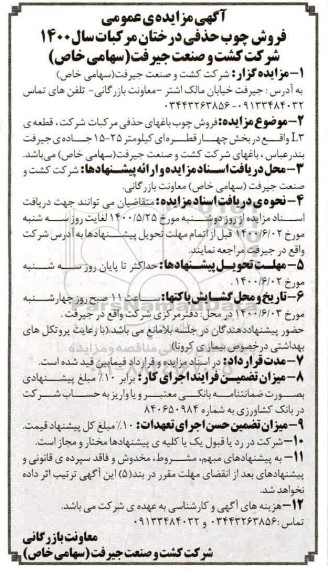 آگهی مزایده ی عمومی
فروش چوب حذفی درختان مرکبات سال ۱۴۰۰
شرکت کشت و صنعت جیرفت (سهامی خاص)
۱-مزایده گزار: شرکت کشت و صنعت جیرفت(سهامی خاص)
به آدرس : جیرفت خیابان مالک اشتر -معاونت بازرگانی- تلفن های تماس
۰۹۱۳۳۴۸۴۰۳۲-۰۳۴۴۳۲۶۳۸۵۶
۲-موضوع مزایده:فروش چوب باغهای حذفی مرکبات شرکت، قطعه ی
L۳ واقع در بخش چهار قطر ه ای کیلومتر ۲۵-۱۵ جاده ی جیرفت
بندرعباس ، باغهای شرکت کشت و صنعت جیرفت(سهامی خاص) می‌باشد.
۳-محل دریافت اسناد مزایده و ارائه پیشنهادها: شرکت کشت و
صنعت جیرفت (سهامی خاص) معاونت بازرگانی.
۴-نحوه ی دریافت اسناد مزایده: متقاضیان می توانند جهت دریافت
اسناد مزایده از روز دوشنبه مورخ ۱۴۰۰/۵/۲۵ لغایت روز سه شنبه
مورخ ۱۴۰۰/۶/۰۲ قبل از اتمام مهلت تحویل پیشنهادها به آدرس شرکت
واقع در جیرفت مراجعه نمایند.
۵-مهلت تحویل پیشنهادها: حداکثر تا پایان روز سه شنبه
مورخ ۱۴۰۰/۶/۰۲.
۶-تاریخ و محل گشایش پاکتها: ساعت ۱۱ صبح روز چهارشنبه
مورخ ۱۴۰۰/۶/۰۳ در محل: دفتر مرکزی شرکت واقع در جیرفت .
حضور پیشنهاددهندگان در جلسه بلامانع می باشد.(با رعایت پروتکل های
بهداشتی درخصوص بیماری کرونا)
۷-مدت قرارداد: در اسناد مزایده و قرارداد فیمابین قید شده است.
۸-میزان تضمین فرایند اجرای کار: برابر ۱۰٪ مبلغ پیشنهادی
بصورت ضمانتنامه بانکی معتبر و یا واریز به حساب شرکت
در بانک کشاورزی به شماره ۸۴۰۶۵۰۹۸۴
۹-میزان تضمین حسن اجرای تعهدات: ۱۰٪ مبلغ کل پیشنهاد قیمت.
۱۰-شرکت در رد یا قبول یک یا کلیه ی پیشنهادها مختار و مجاز است.
۱۱-به پیشنهادهای مبهم، مشروط، مخدوش و فاقد سپرده ی قانونی و
پیشنهادهای بعد از انقضای مهلت مقرر در بند(۵) این آگهی ترتیب اثر داده
نخواهد شد.
۱۲-هزینه های آگهی و کارشناسی به عهده ی شرکت می باشد.
تماس:۰۳۴۴۳۲۶۳۸۵۶ و ۰۹۱۳۳۴۸۴۰۳۲
معاونت بازرگانی
شرکت کشت و صنعت جیرفت (سهامی خاص)